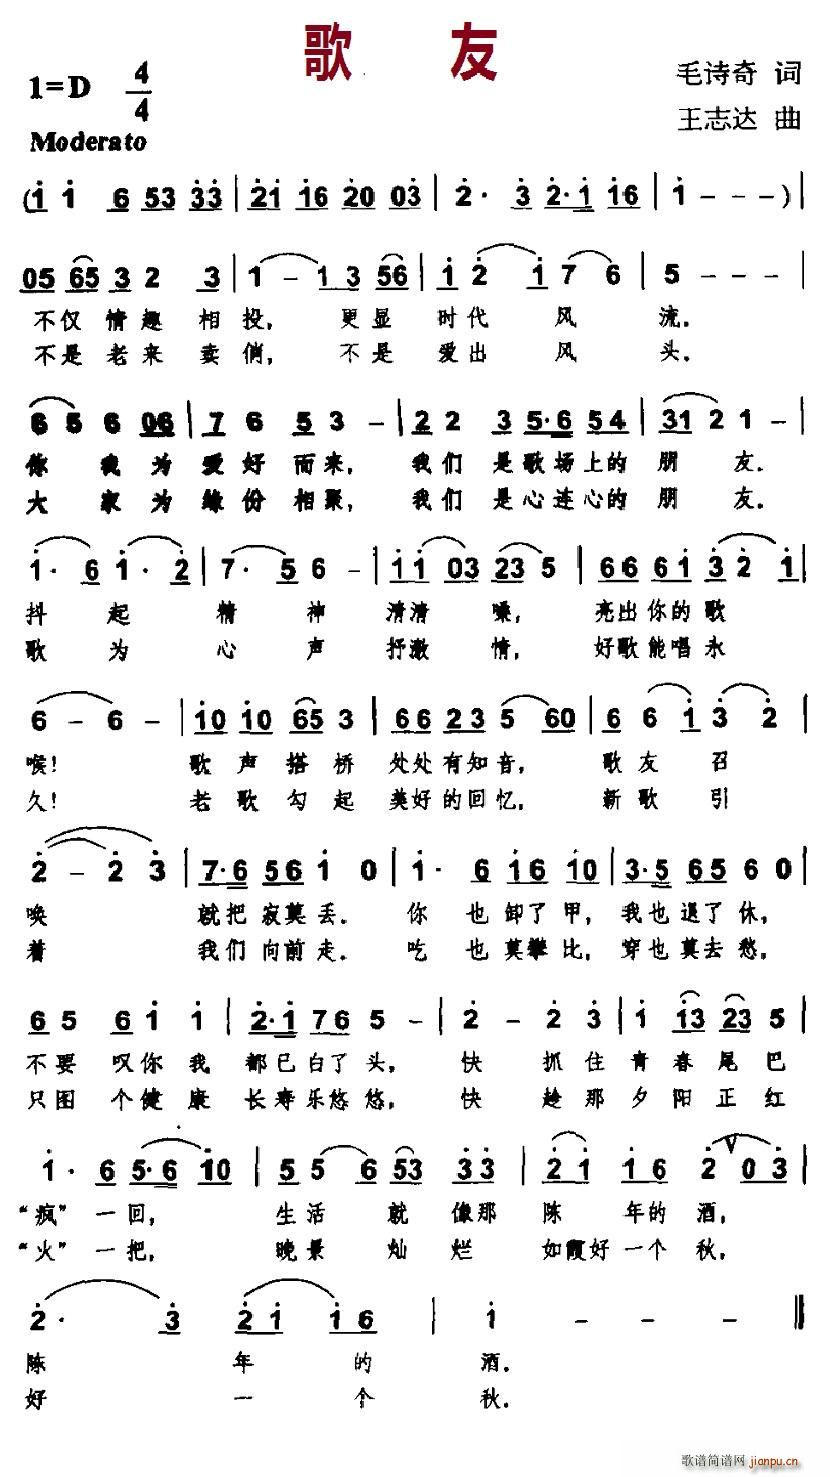 歌 友
1=D 4/4
毛诗奇 词
王志达 曲
Moderato
(1 1 6 53 33 | 21 16 20 03 | 2· 3 2·1 16 | 1 - - - ) |
05 65 3 2 3 | 1 - 1 3 56 | 1 2 1 7 6 | 5 - - -
不仅 情趣 相 投, 更显 时代 风 流.
不是 老来 卖 俏, 不是 爱出 风 头.
6 5 6 06 | 7 6 5 3 - | 2 2 3 5·6 5 4 | 31 2 1 - |
你 我 为 爱好 而来, 我们 是歌场上的 朋 友.
大 家 为 缘份 相聚, 我们 是心连心的 朋 友.
1· 6 1· 2 | 7· 5 6 - | 11 03 23 5 | 66 61 3 2 1 |
抖 起 精 神 清清 嗓, 亮出你的歌
歌 为 心 声 抒激 情, 好歌能唱永
6 - 6 - | 10 10 65 3 | 66 23 5 60 | 6 6 1 3 2 |
喉! 歌声搭桥 处处有知音, 歌友召
久! 老歌勾起 美好的回忆, 新歌引
2 - 2 3 | 7·6 56 1 0 | 1· 6 16 10 | 3·5 65 6 0 |
唤 就把寂莫丢. 你 也卸了甲, 我也退了休,
着 我们向前走. 吃 也莫攀比, 穿也莫去愁,
6 5 6 1 1 | 2·1 76 5 - | 2 - 2 3 | 1 13 23 5 |
不要 叹你我 都已白了头, 快 抓住青春尾巴
只图 个健康 长寿乐悠悠, 快 趁那夕阳正红
1· 6 5·6 10 | 5 5 5 6 53 3 3 | 2 1 1 6 2 2 0 3 |
“疯”一回, 生活 就 像那 陈 年的酒,
“火”一把, 晚景 灿 烂 如霞好一个秋,
2· 3 | 2 1 1 6 | 1 - - - ‖
陈 年 的 酒.
好 一 个 秋.
歌谱简谱网
jianpu.cn